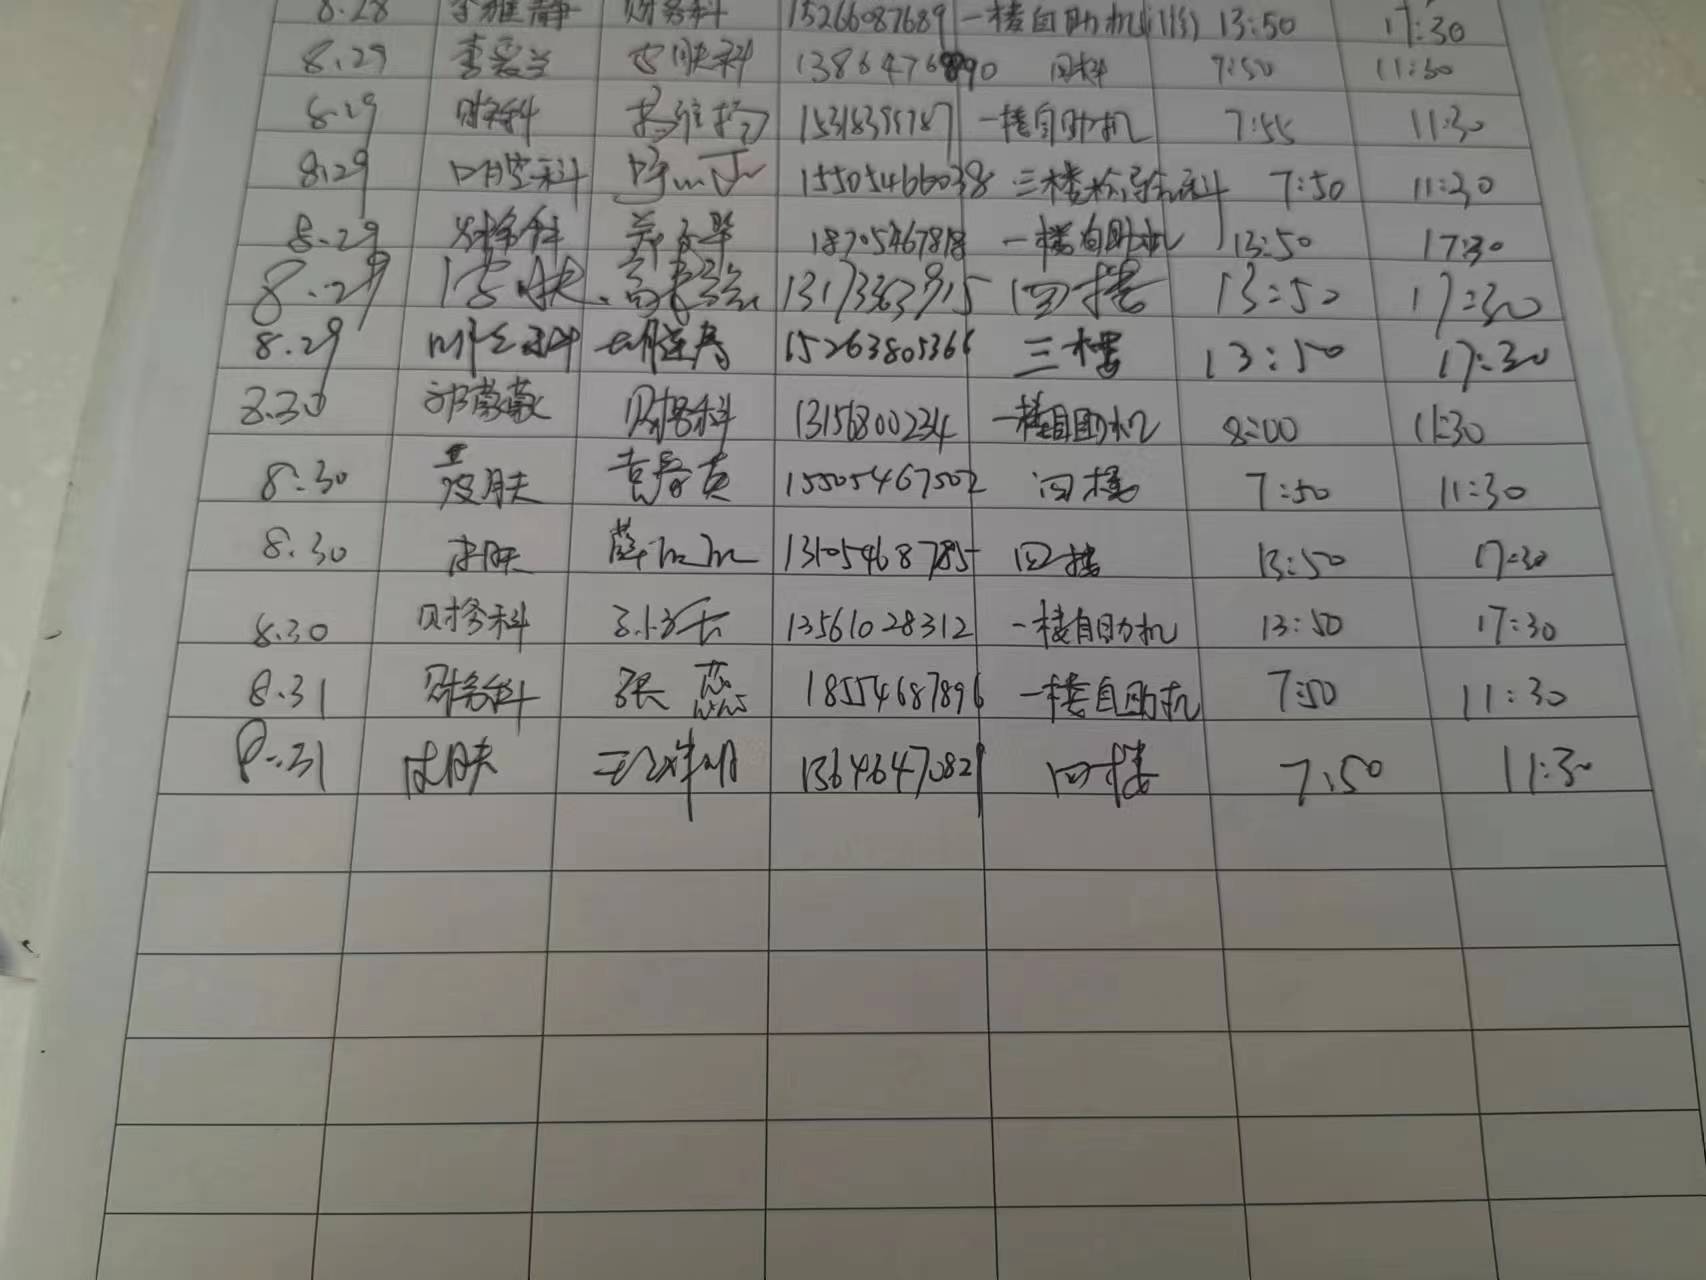 8.28 李雅静 财务科 15266087689 一楼自助机(1台) 13:50 17:30
8.29 李爱兰 皮肤科 13864768890 四科 7:50 11:30
8.29 财务科 15318399787 一楼自助机 7:55 11:30
8.29 口腔科 15505466038 三楼检验科 7:50 11:30
8.29 财务科 18705467818 一楼自助机 13:50 17:30
8.29 皮肤 13173363915 四楼 13:50 17:30
8.29 15263805366 三楼 13:50 17:30
8.30 祁蒙蒙 财务科 13156800234 一楼自助机 8:00 11:30
8.30 皮肤 15505467502 四楼 7:50 11:30
8.30 皮肤 薛 13105468785 四楼 13:50 17:30
8.30 财务科 13561028312 一楼自助机 13:50 17:30
8.31 财务科 张蕊 18554687896 一楼自助机 7:50 11:30
8.31 皮肤 13646470821 四楼 7:50 11:30